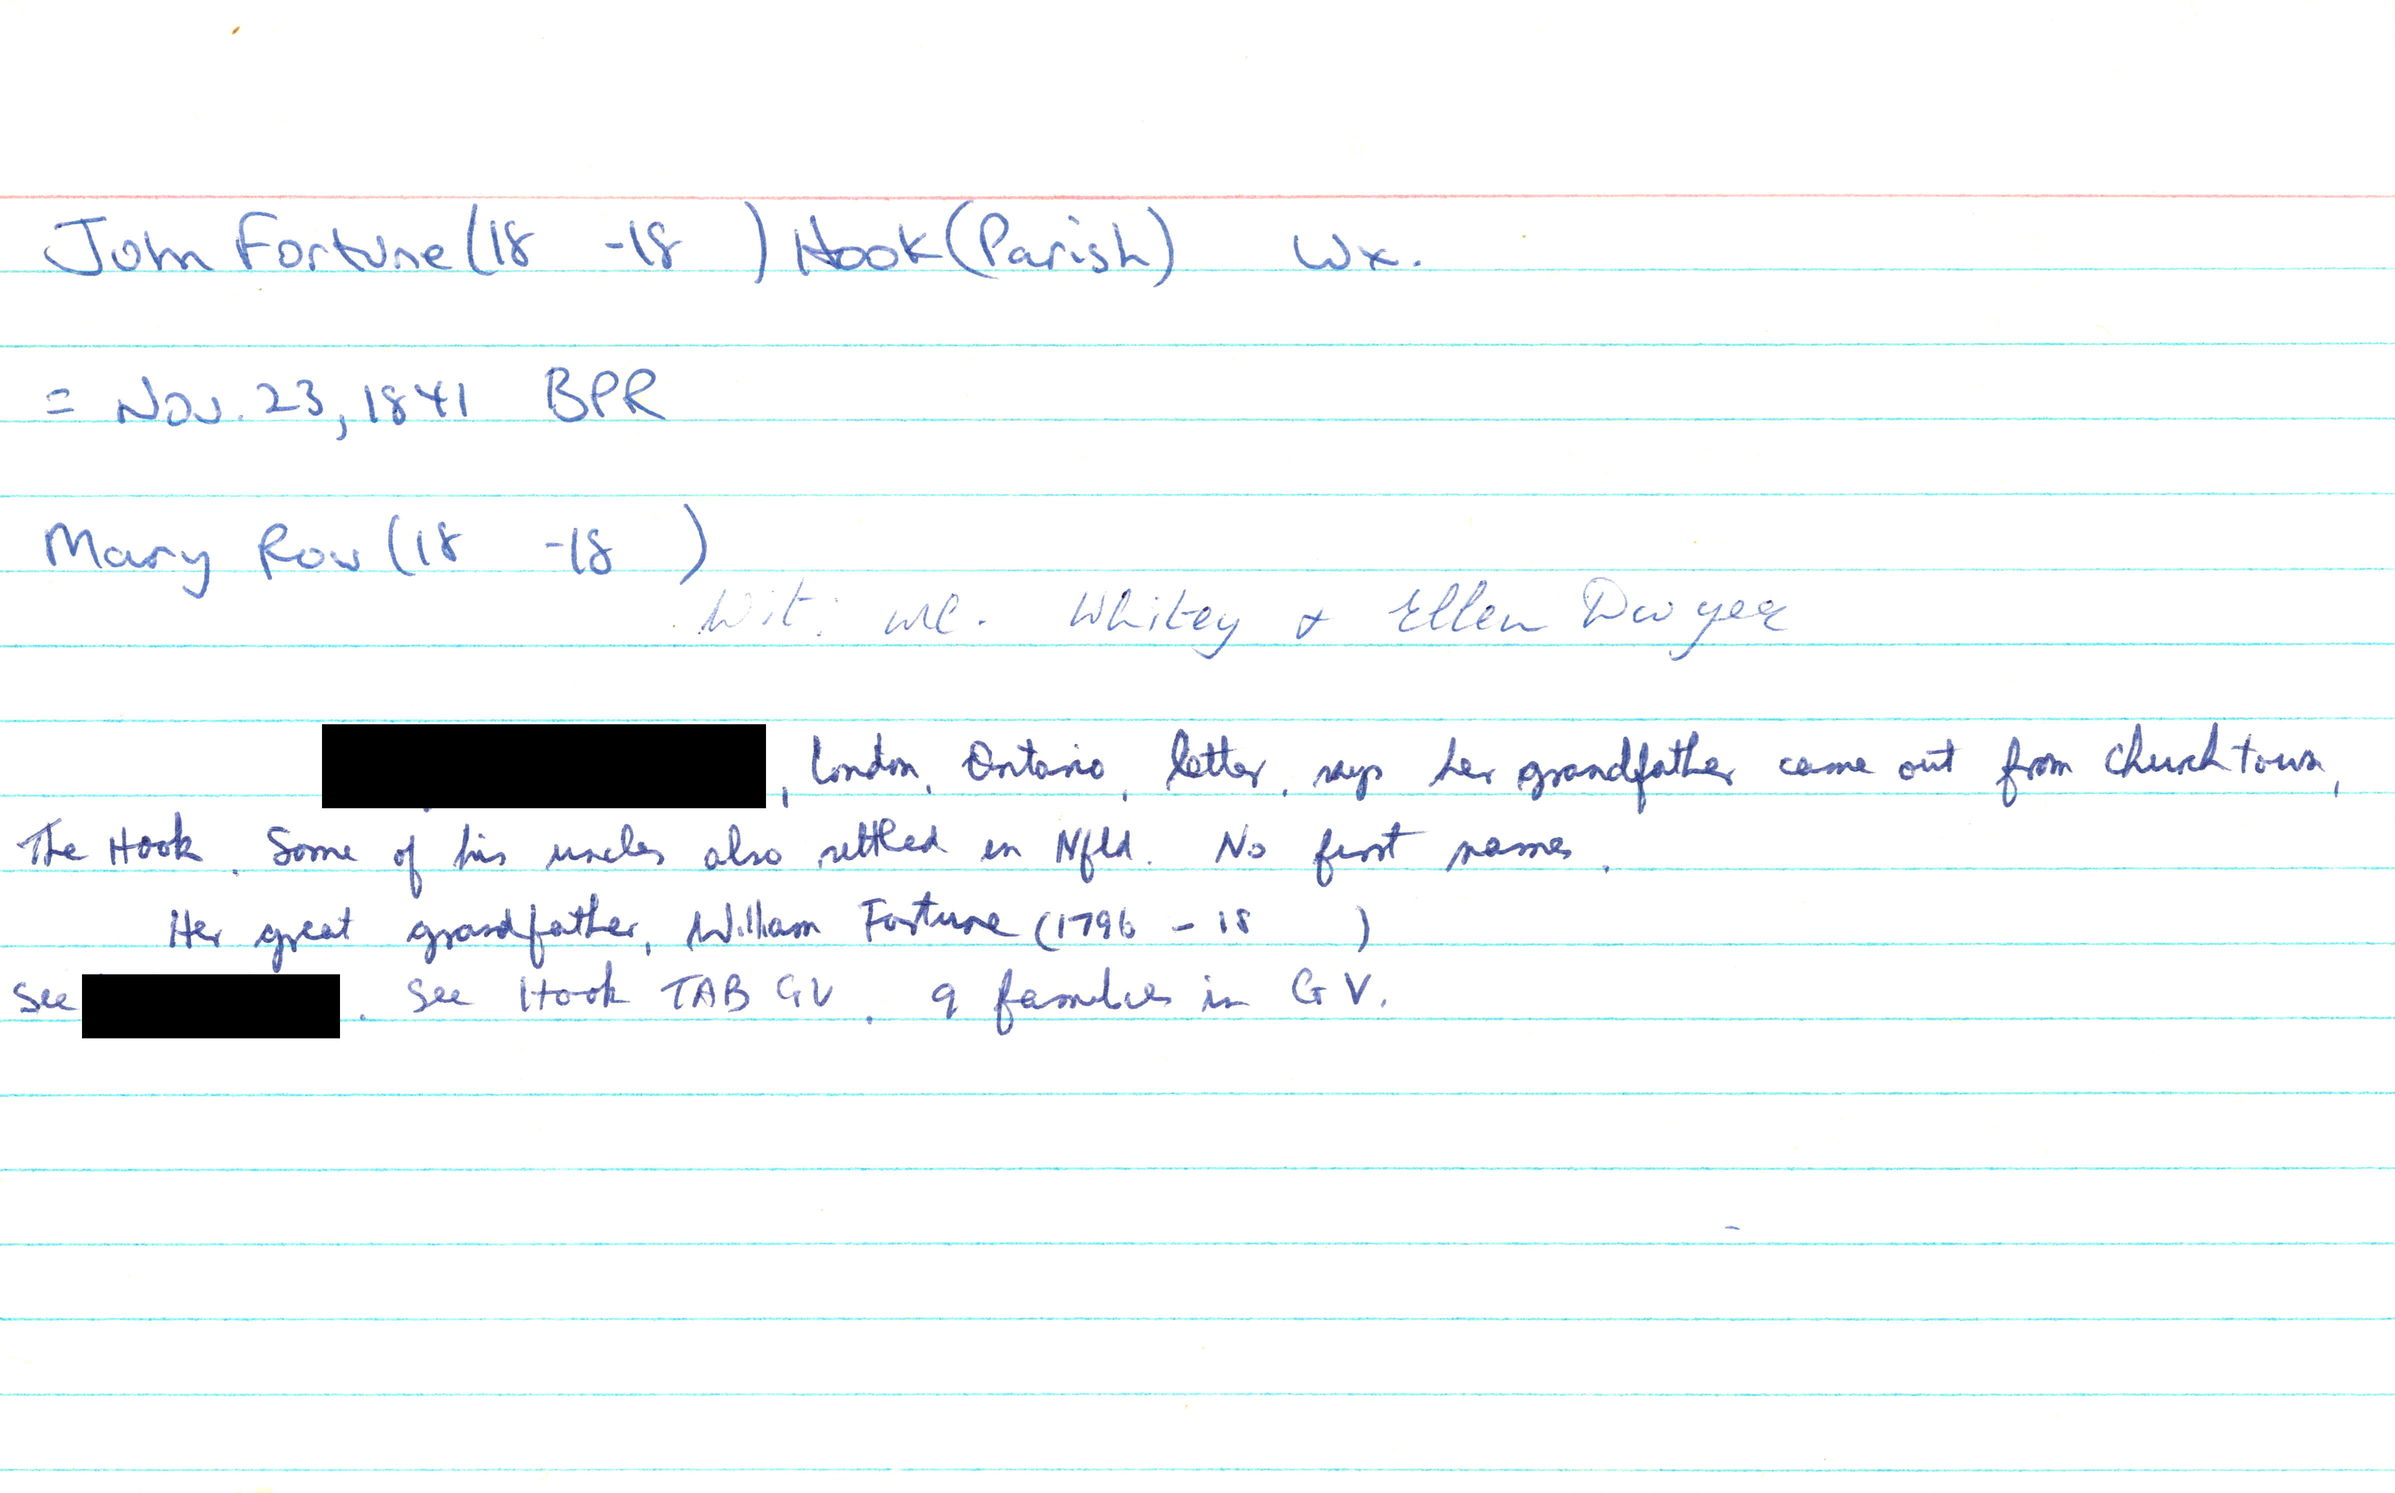 John Fortune (18 -18 ) Hook (Parish) Wx.
= Nov. 23, 1841 BPR
Mary Row (18 -18 )
Wit: Ml. Whitey & Ellen Dwyer
, London, Ontario, letter, says her grandfather came out from Churchtown,
The Hook. Some of his uncles also settled in Nfld. No first names.
Her great grandfather, William Fortune (1796 - 18 )
See . See Hook TAB GV. 9 families in GV.